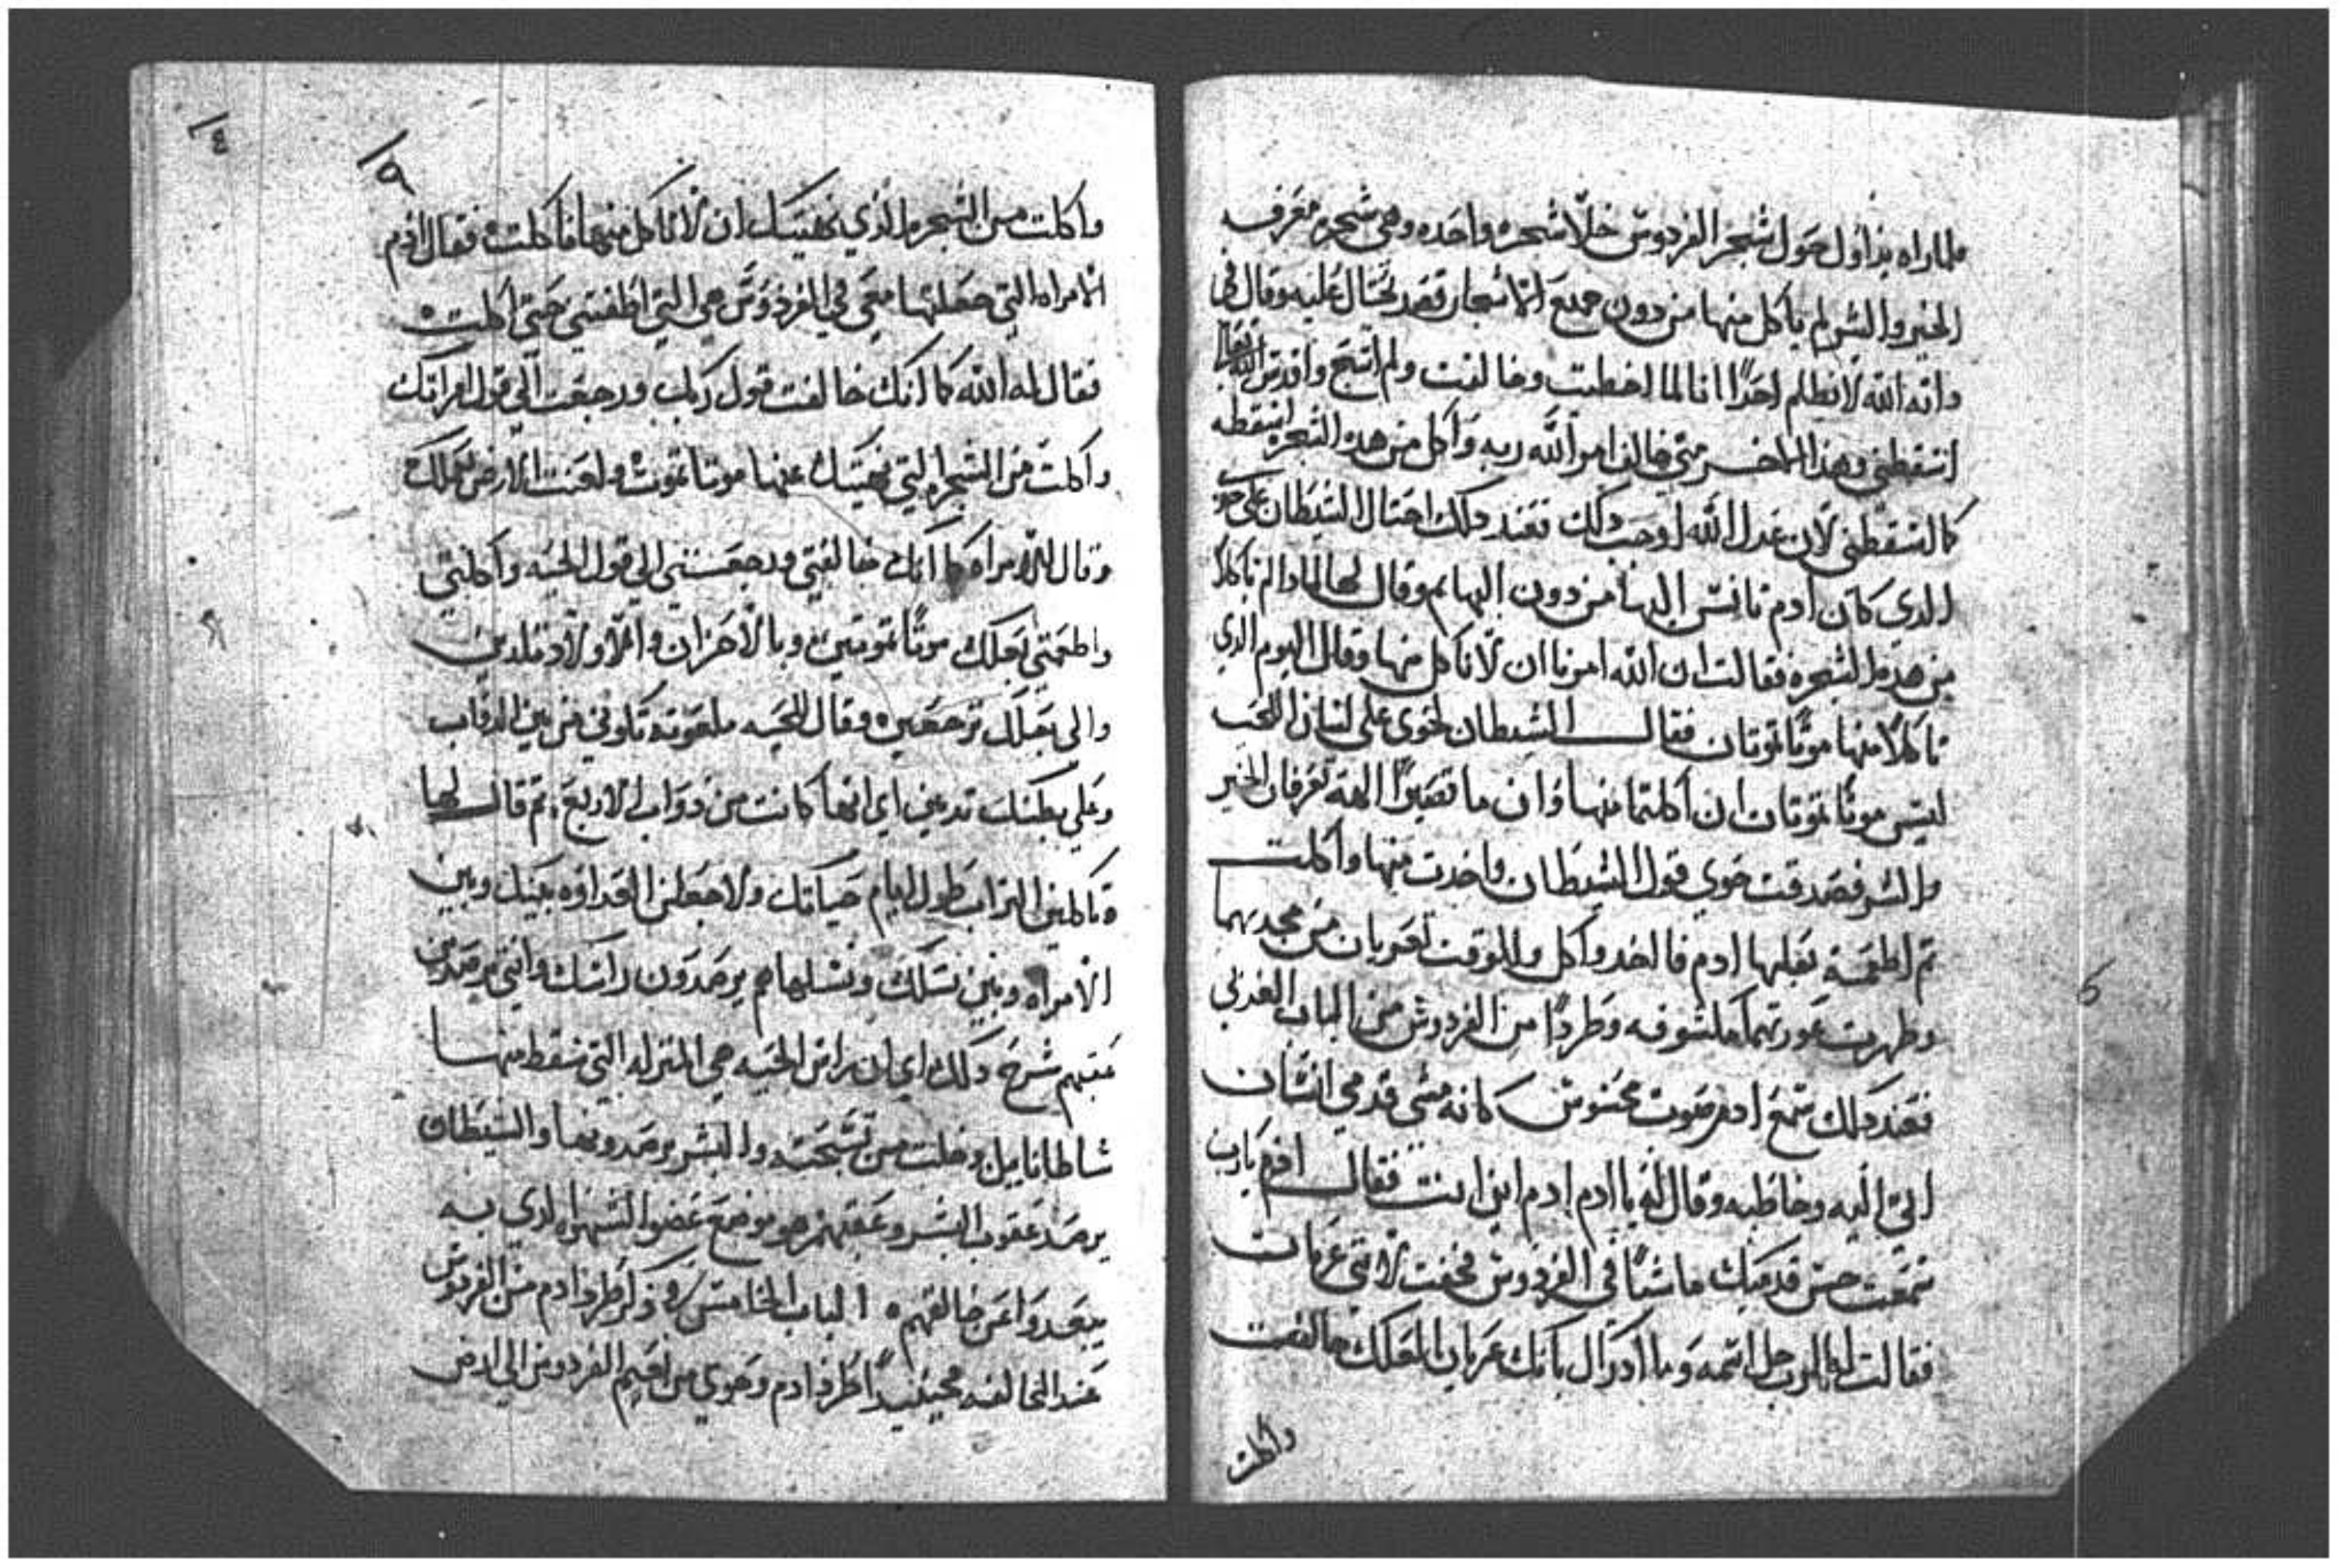 فلما راه يداول حول شجر الفردوس خلا شجره واحده وهي شجرة معرفه
الخير والشر لم ياكل منها من دون جميع الاشجار فقد تحتال عليه وقال في
وانه الله لا يظلم احدًا انا لما اخطيت وخالفت ولم اتبع واقدس الله تعالى
اسقطني وهذا الاخر متي خالف امر الله ربه واكل من هذه الشجره اسقطه
كالسقطني لان عدل الله اوجب دلك فعند دلك احتال الشيطان على حوى
الدي كان ادم تانس اليها من دون البهايم وقال لها لمادا لم تاكلا
من هذه الشجره فقالت ان الله امرنا ان لا ناكل منها وقال اليوم الذي
تاكلا منها موتًا تموتان فقال الشيطان لحوى على لسان الحيه
ليس موتًا تموتان ان اكلتما منها وان ما تصيرا الهه تعرفان الخير
والشر فصدقت حوي قول الشيطان واخدت منها واكلت
تم اطعمة بعلها ادم فااخد واكل وللوقت تعريان من مجديهما
وظهرت عورتهما مكشوفه وطردًا من الفردوس من الباب الغربي
فعند دلك سمع ادم صوت محسوس كانه مشي قدمي انسان
اتى اليه وخاطبه وقال له يا ادم ادم اين انت فقال ادم يارب
سمعت حس قدميك ماشيًا في الفردوس فخفت لانني عريان
فقالت له الرب جل اسمه وما ادراك بانك عريان لعلك خالفت
واكلت
١٥
واكلت من الشجره الذي نهيتك ان لا تاكل منها فاكلت فقال ادم
الامراه التي جعلتها معي في الفردوس هي التي اطغتني حتى اكلت
فقال له الله كما انك خالفت قول ربك ورجعت الي قول امراتك
واكلت من الشجره التي نهيتك عنها موتا تموت ولعنت الارض بعملك
وقال للامراه كما انك خالفتي ورجعتي الي قول الحيه واكلتي
واطعمتي بعلك موتًا تموتين وبالاحزان والاولاد تلدين
والى بعلك ترجعين وقال للحيه ملعونة تكوني من بين الدواب
وعلي بطنك تدبين اي انها كانت من دواب الاربع تم قال لها
وتاكلين التراب طول ايام حياتك ولاجعلن العداوه بينك وبين
الامراه وبين نسلك ونسلها هم يرصدون راسك وانتي ترصدين
عقبهم شرح دلك اي ان راس الحيه هي المنزله التي سقط منها
شاطانايل وخلت من تسبحته والبشر يرصدونها والشيطان
يرصد عقوب البشر وعقبهم هو موضع عضو الشهوه الدي به
يبعدوا عن خالقهم الباب الخامس ذكر طرد ادم من الفردوس
عند المخالفه فحينيدًا طرد ادم وحوي من نعيم الفردوس الي ارض